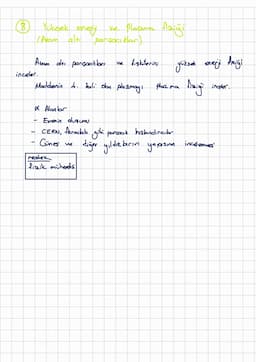 ⑧ Yüksek enerji ve Plazma Fiziği
(Atom altı parçacıkları)
Atom altı parçacıkları ve ilişkilerini yüksek enerji fiziği
inceler.
Maddenin 4. hali olan plazmayı Plazma Fiziği inceler.
* Alanlar
- Evrenin oluşumu
- CERN, Fermilab gibi parçacık hızlandırıcılar
- Güneş ve diğer yıldızların yapısının incelenmesi
meslek
fizik mühendisi